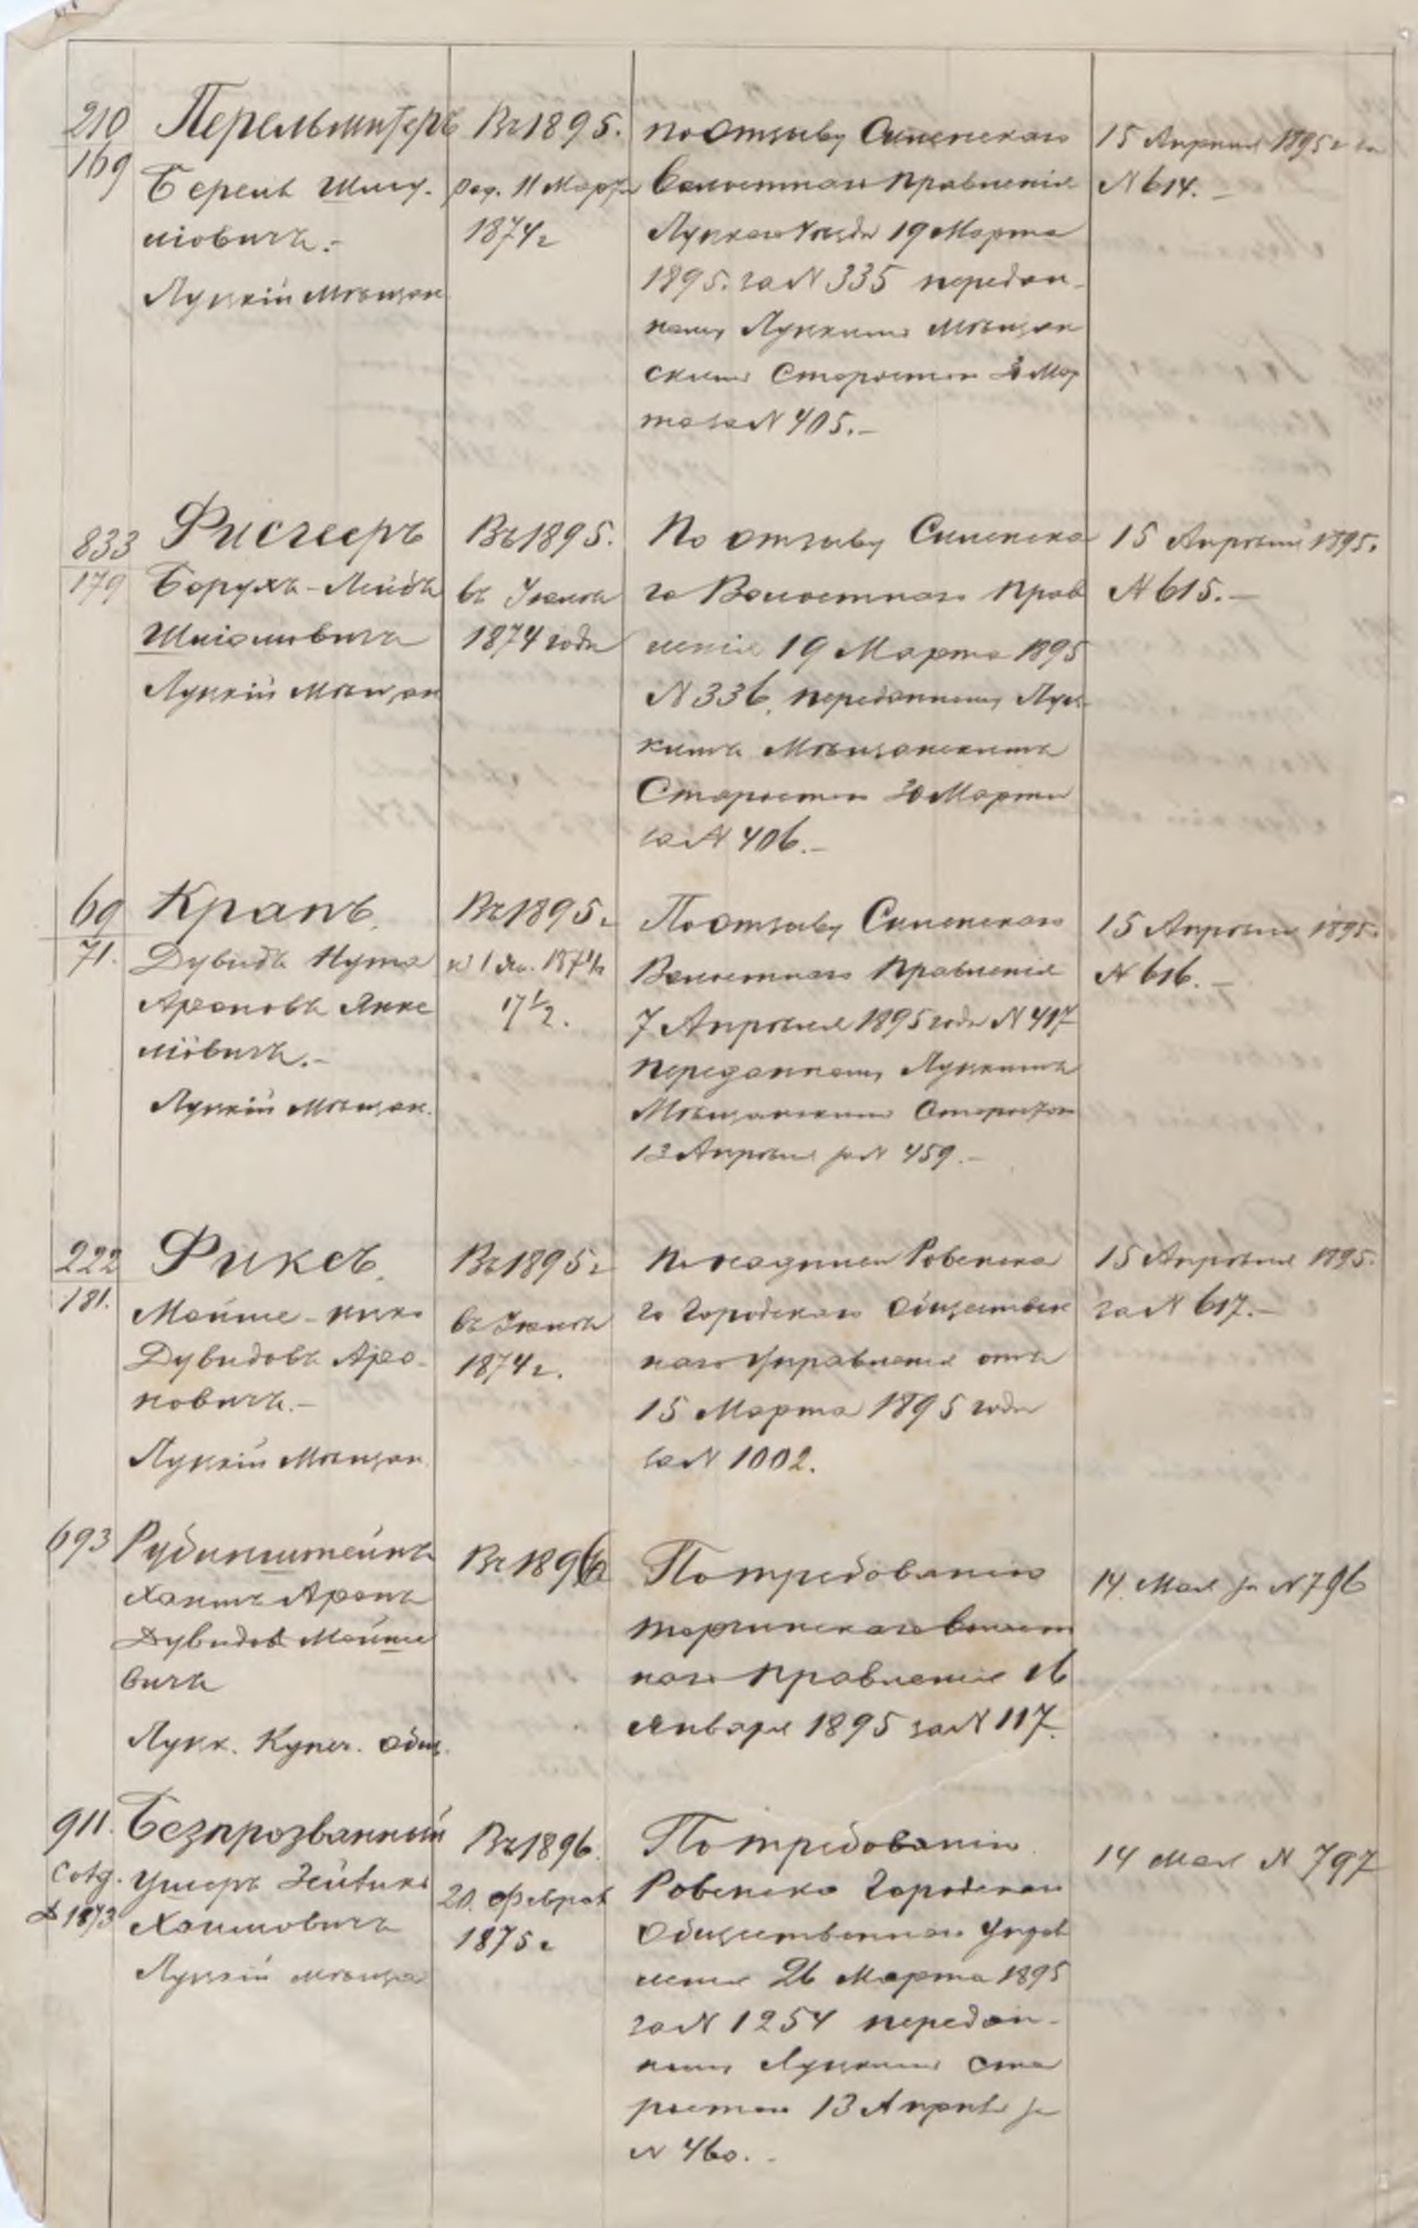 210
169
Перельмитеръ
Берель Шму-
ліовичъ.-
Луцкій Мѣщан
Въ 1895.
род. 11 Марта
1874 г
по отзыву Силенскаго
Волостнаго Правленія
Луцкаго Уѣзда 19 Марта
1895. за N 335 передан-
ному Луцкимъ Мѣщан
скимъ Старостою Мар
та за N 405.-
15 Апрѣля 1895 г за
N 614.-
833
179
Фисгееръ
Борухъ-Лейбъ
Шліомовичъ
Луцкій Мѣщан
Въ 1895.
въ
1874 года
По отзыву Силенска
го Волостнаго Прав
ленія 19 Марта 1895
N 336, переданному Луц-
кимъ Мѣщанскимъ
Старостою 30 Марта
за N 406.-
15 Апрѣля 1895.
N 615.-
69
71.
Крапъ.
Дувидъ Нута
Ароновъ Янке
ліовичъ.-
Луцкій Мѣщан.
Въ 1895 г
к 1 Ян. 1874
17 1/2.
По отзыву Силенскаго
Волостнаго Правленія
7 Апрѣля 1895 года N 417
переданному Луцкимъ
Мѣщанскимъ Старостою
13 Апрѣля за N 459.-
15 Апрѣля 1895.
N 616.-
222
181.
Фиксъ.
Мойше-
Дувидовъ Аро-
новичъ.-
Луцкій Мѣщан.
Въ 1895 г
въ
1874 г.
Ровенска
го Городскаго Обществен
наго Управленія отъ
15 Марта 1895 года
за N 1002.
15 Апрѣля 1895.
за N 617.-
693
Рубинштейнъ
Хаимъ Аронъ
Дувидов Мойше
вичъ
Луцк. Купеч. Общ.
Въ 1896
По требованію
Торчинскаго Волост
наго Правленія 16
Января 1895 за N 117.
14 Мая за N 796
911.
1873
Безпрозванный
Ушеръ
Хаимовичъ
Луцкій мѣщан
Въ 1896.
20. Феврал
1875 г
По требованію
Ровенска Городскаго
Общественнаго Управ
ленія 26 Марта 1895
за N 1254 передан-
ному Луцкимъ Ста
ростою 13 Апрѣля за
N 460.-
14 Мая N 797